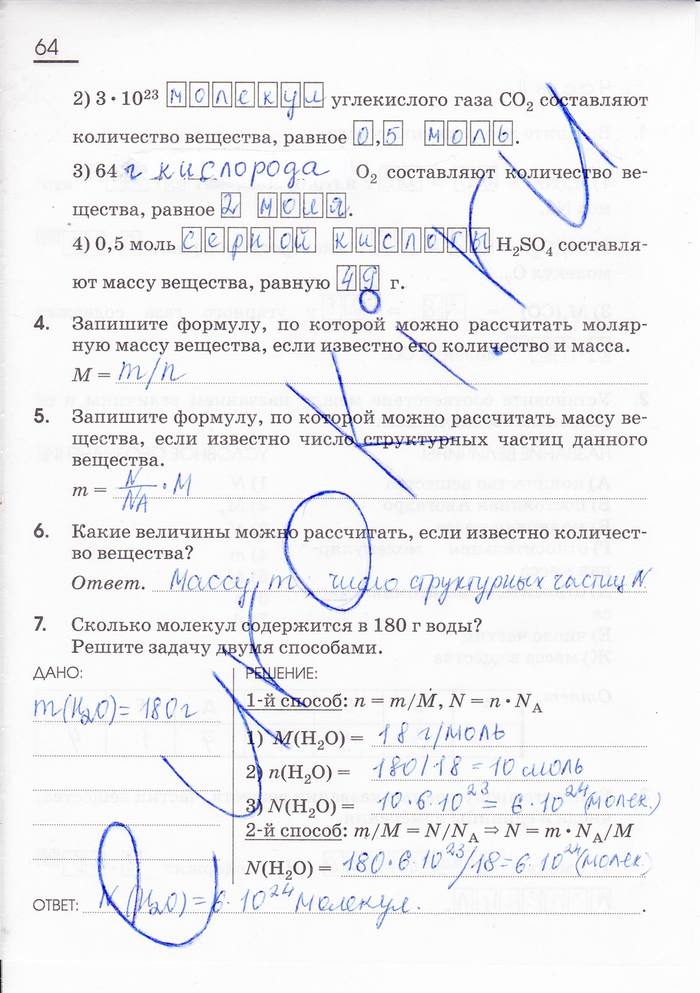 64
2) 3 • 10²³ молекул углекислого газа CO₂ составляют
количество вещества, равное 0,5 моль.
3) 64 г кислорода O₂ составляют количество ве-
щества, равное 2 моля.
4) 0,5 моль серной кислоты H₂SO₄ составля-
ют массу вещества, равную 49 г.
4. Запишите формулу, по которой можно рассчитать моляр-
ную массу вещества, если известно его количество и масса.
M = m/n
5. Запишите формулу, по которой можно рассчитать массу ве-
щества, если известно число структурных частиц данного
вещества.
m = N/NA • M
6. Какие величины можно рассчитать, если известно количест-
во вещества?
Ответ. Массу m, число структурных частиц N.
7. Сколько молекул содержится в 180 г воды?
Решите задачу двумя способами.
ДАНО: РЕШЕНИЕ:
1-й способ: n = m/M, N = n • N_A
m(H₂O) = 180г
1) M(H₂O) = 18 г/моль
2) n(H₂O) = 180/18 = 10 моль
3) N(H₂O) = 10•6•10²³ = 6•10²⁴ (молек.)
2-й способ: m/M = N/N_A ⇒ N = m • N_A/M
N(H₂O) = 180•6•10²³/18 = 6•10²⁴ (молек)
ОТВЕТ: N(H₂O) = 6•10²⁴ молекул.